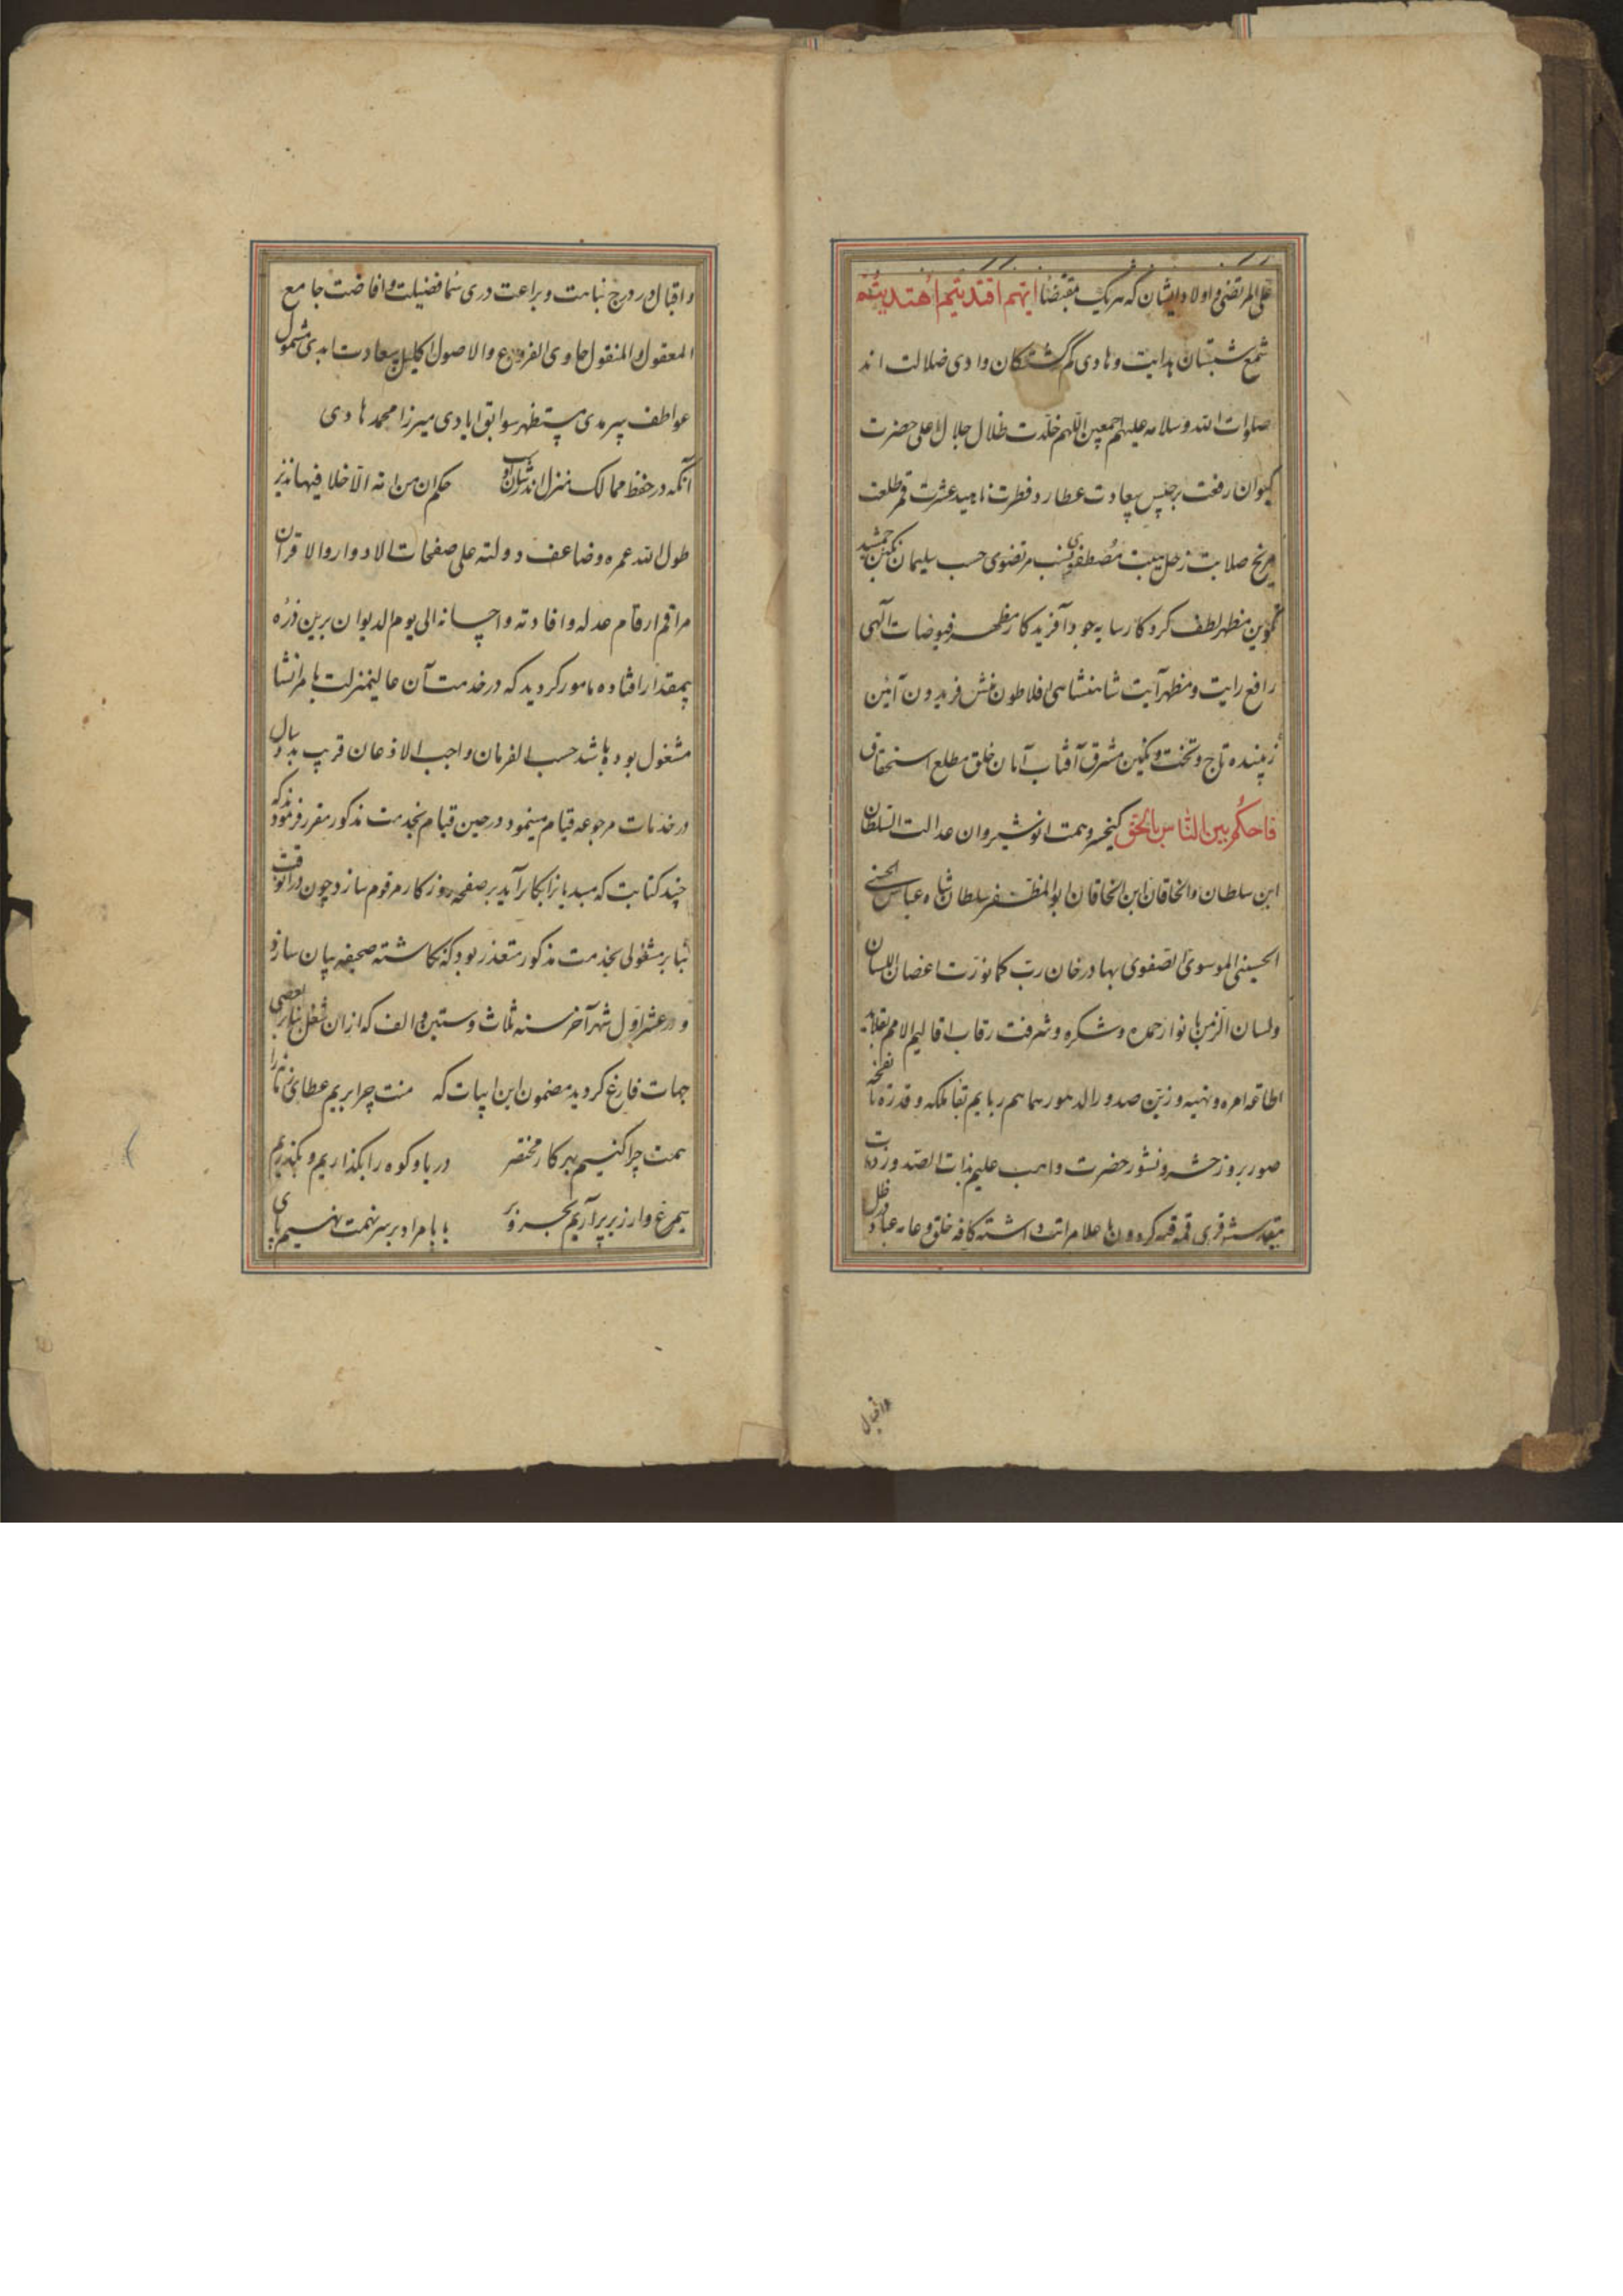 علی المرتضی و اولاد ایشان که هر یک بمقتضا ایتهم اقتدیتم اهتدیتم
شمع شبستان هدایت و هادی گم گشتگان وادی ضلالت اند
صلوات الله و سلامه علیهم اجمعین اللهم خلدت ظلال جلال اعلی حضرت
کیوان رفعت برجیس سعادت عطارد فطرت ناهید عشرت قمر طلعت
مریخ صلابت زحل هیبت مصطفوی نسب مرتضوی حسب سلیمان نگین جمشید
تمکین مظهر لطف کردکار سایه جود آفریدکار مظهر فیوضات آلهی
رافع رایت و مظهر آیت شاهنشاهی افلاطون منش فریدون آئین
زیبنده تاج و تخت و نکین مشرق آفتاب آمان خلق مطلع استحقاق
فاحکم بین الناس بالحق کیخسرو همت انوشیروان عدالت السلطان
ابن سلطان والخاقان ابن الخاقان ابوالمظفر سلطان شاه عباس الحسنی
الحسینی الموسوی الصفوی بهادر خان رب کما نورت اغصان اللسان
ولسان الزمن بانوار حمده و شکره و شرفت رقاب اقالیم الامم بقلاید
اطاعه امره و نهیه و زین صدور الدهور بقا ملکه و قدره تا نفخه
صور بروز حشر و نشور حضرت واهب علیم بذات الصدور
خلق و عامه عباد ظل
واقبال
و اقبال در درج نباهت و براعت دری سما فضیلت و افاضت جامع
المعقول والمنقول حاوی الفروع والاصول اکلیل سعادت ابدی مشمول
عواطف سرمدی مستظهر سوابق ایادی میرزا محمد هادی
آنکه در حفظ ممالک منزل اندر شان او حکم ان من امة الا خلا فیها نذیر
طول الله عمره و ضاعف دولته علی صفحات الادوار والاقران
مراقم ارقام عدله و افادته و احسانه الی یوم الدیوان برین ذره
بیمقدار افتاده مامور کردید که در خدمت آن عالیمنزلت بامر انشا
مشغول بوده باشد حسب الفرمان واجب الاذعان قریب بدو سال
در خدمات مرجوعه قیام مینمود در حین قیام بخدمت مذکور مقرر فرمودند که
چند کتابت که مبدیانرا بکار آید بر صفحه روزکار مرقوم سازد چون در انوقت
بنابر مشغولی بخدمت مذکور متعذر بود که نکاشته صحیفه بیان سازد
و در عشر اول شهر آخر سنه ثلاث و ستین و الف که ازان شغل بنابر بعضی
جهات فارغ کردید مضمون این ابیات که منت چرا بریم عطای زمانه را
همت چرا کنیم بهر کار مختصر دریا و کوه را بکذاریم و بکذریم
سیمرغ وار زیر پر آریم بحر و بر یا با مراد بر سر همت نهیم پای